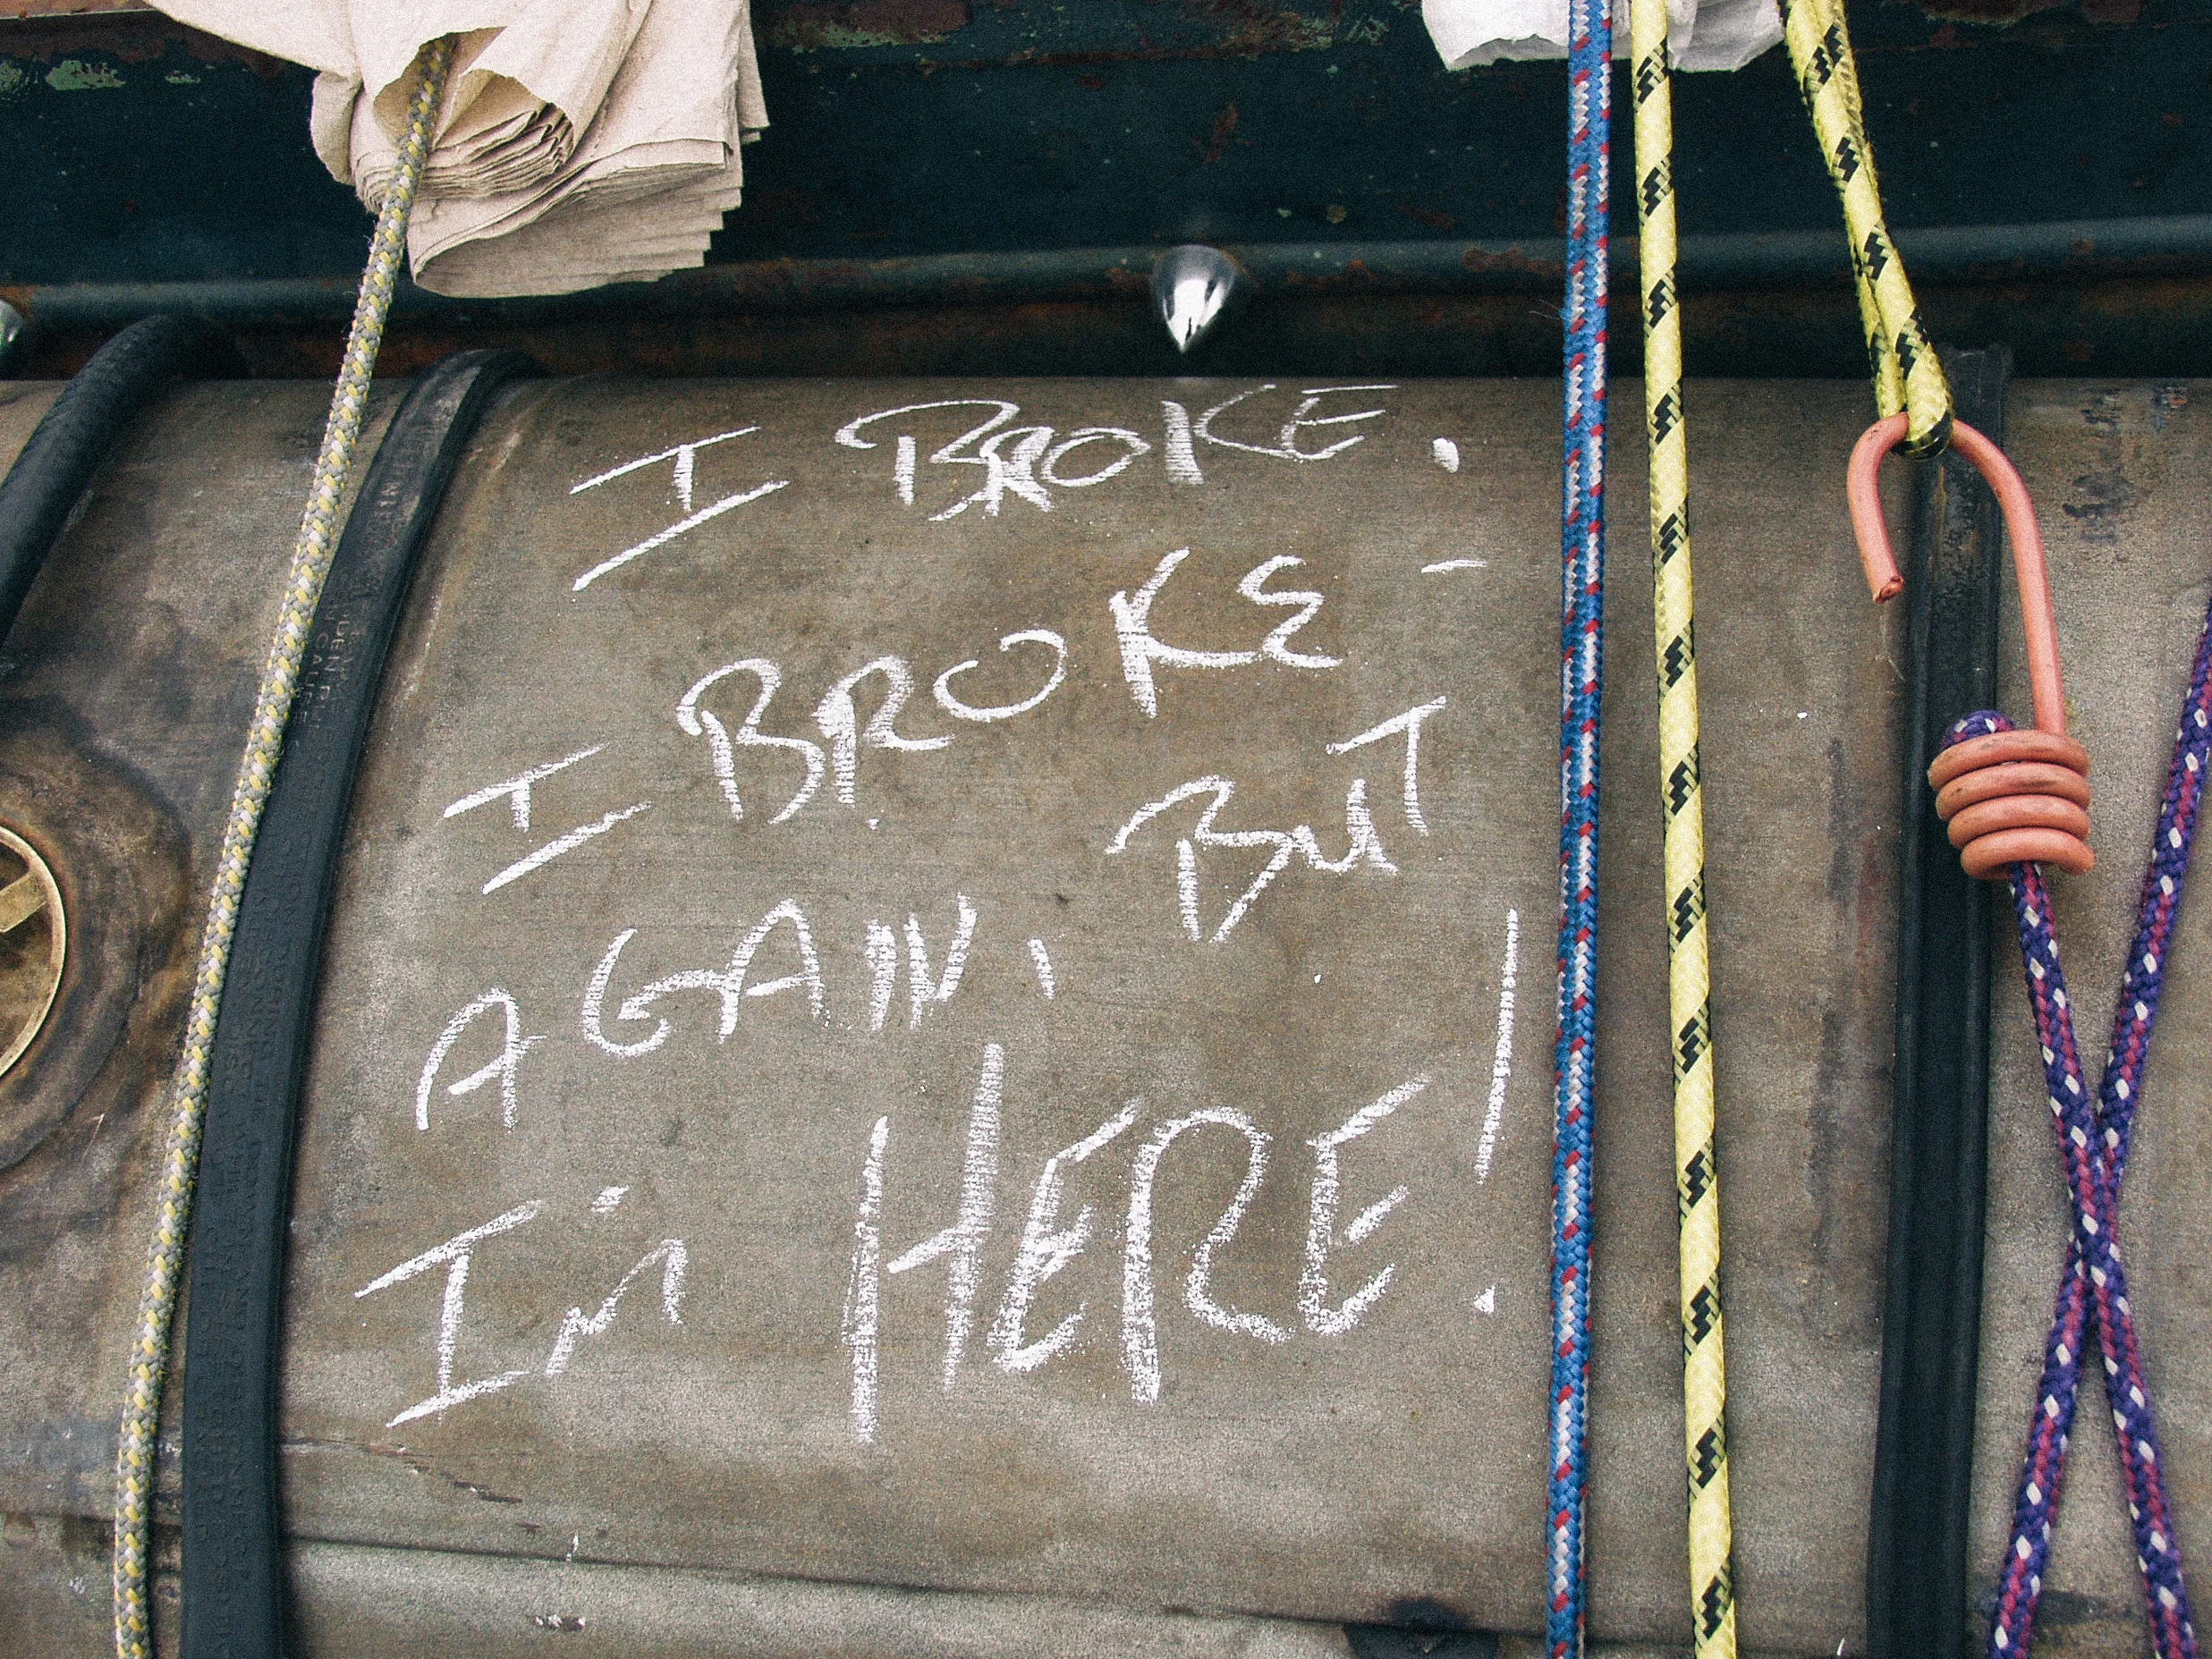 I BROKE.
I BROKE -
AGAIN, BUT
I'm HERE!